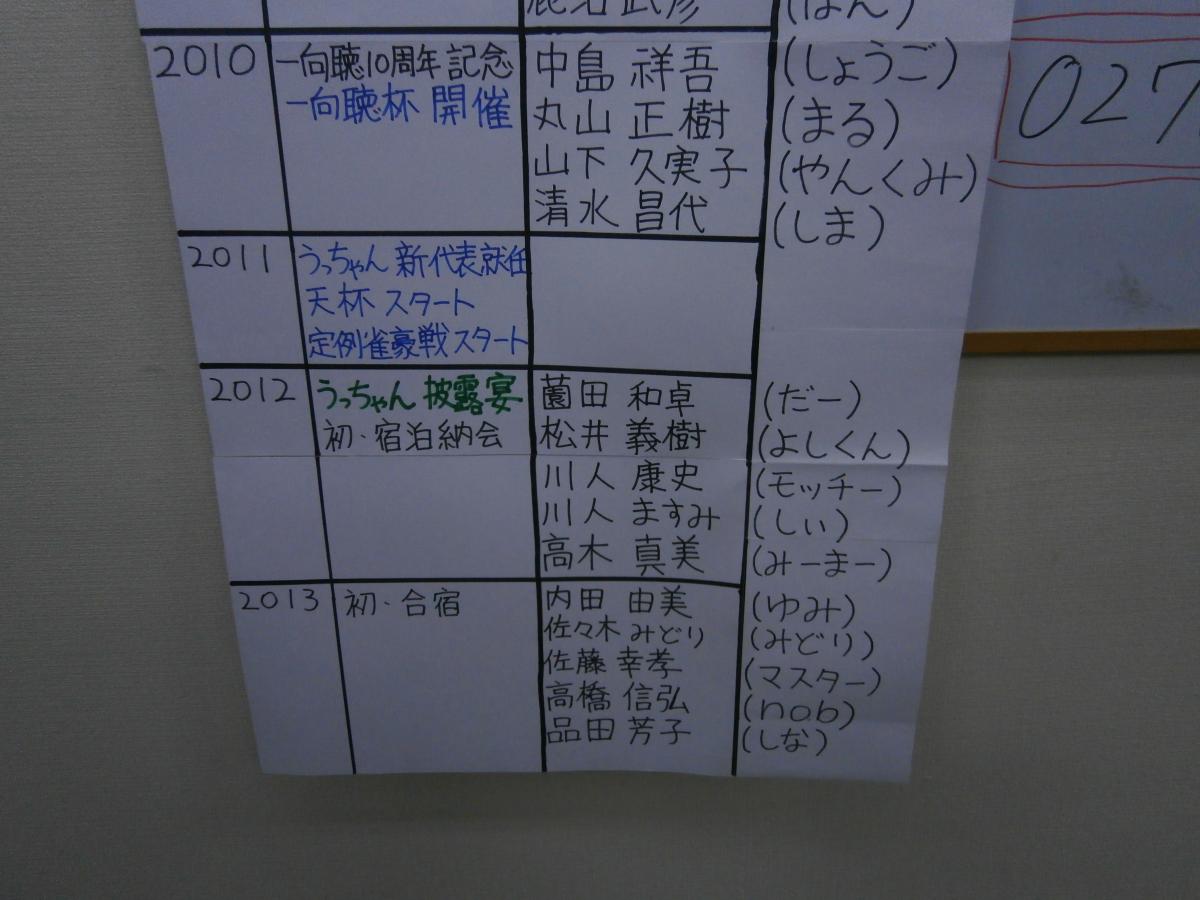 武彦 (はん)
2010 一向聴10周年記念 中島 祥吾 (しょうご)
一向聴杯 開催 丸山 正樹 (まる)
山下 久実子 (やんくみ)
清水 昌代 (しま)
027
2011 うっちゃん 新代表就任
天杯 スタート
定例雀豪戦スタート
2012 うっちゃん 披露宴 薗田 和卓 (だー)
初・宿泊納会 松井 義樹 (よしくん)
川人 康史 (モッチー)
川人 ますみ (しぃ)
高木 真美 (みーまー)
2013 初・合宿 内田 由美 (ゆみ)
佐々木 みどり (みどり)
佐藤 幸孝 (マスター)
高橋 信弘 (nob)
品田 芳子 (しな)